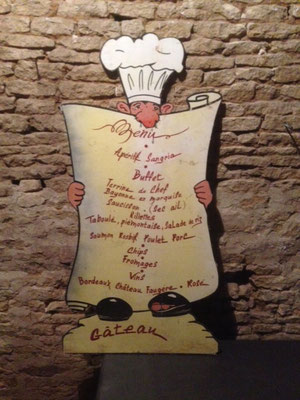 Menu
Apéritif Sangria
Buffet
Terrine de Chef
Bayonne en marquise
Saucisson. (Sec ail)
Rillettes
Taboule, piémontaise, Salade de riz
Saumon Rosbif Poulet Porc
Chips
Fromages
Vins
Bordeaux Château Fougère. Rosé
Gâteau